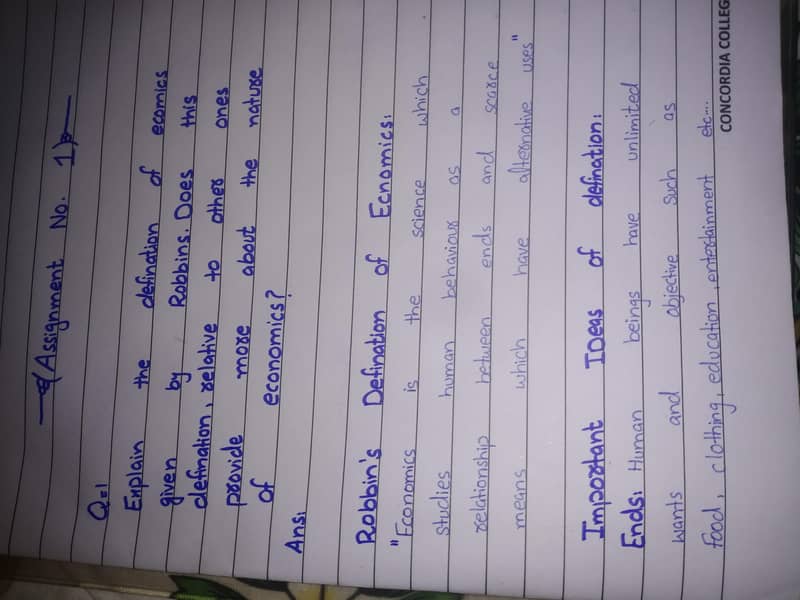 (Assignment No. 1)
Q=1
Explain the defination of ecomics
given by Robbins. Does this
defination, relative to other ones
provide more about the nature
of economics?
Ans:
Robbin's Defination of Ecnomics:
"Economics is the science which
studies human behaviour as a
relationship between ends and scarce
means which have alternative uses"
Important IDeas of defination:
Ends: Human beings have unlimited
wants and objective such as
food, clothing, education, entertainment etc....
CONCORDIA COLLEG